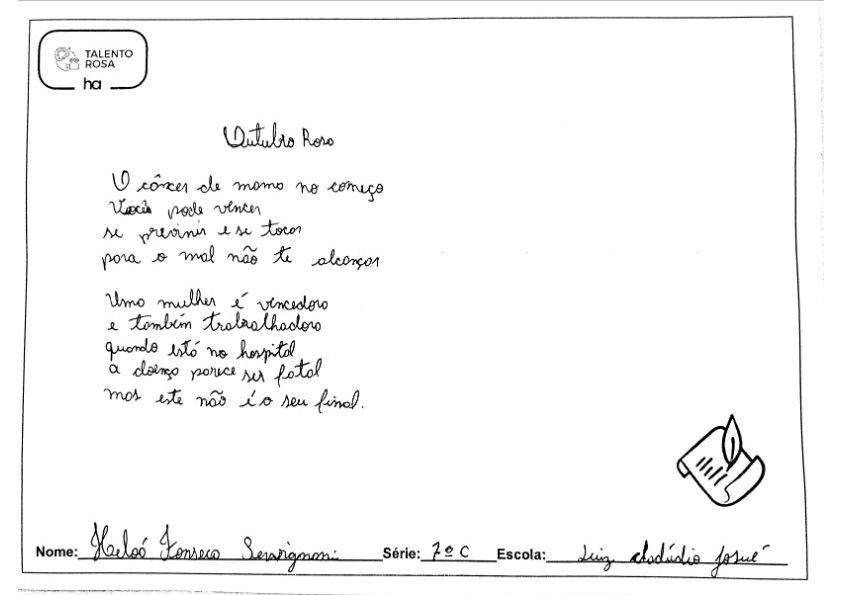 TALENTO
ROSA
ha
Outubro Rosa
O câncer de mama no começo
Você pode vencer
se previnir e se tocar
para o mal não te alcançar
Uma mulher é vencedora
e também trabalhadora
quando está no hospital
a doença parece ser fatal
mas este não é o seu final.
Nome: Heloá Fonseca Servignani Série: 7º C Escola: Luiz Josué